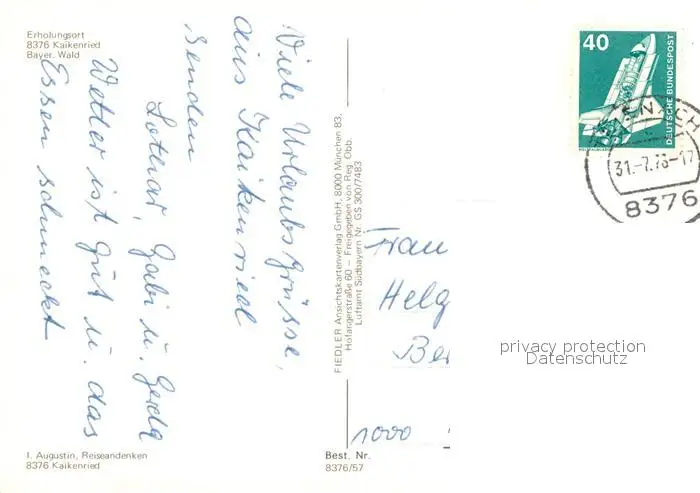 Erholungsort
8376 Kaikenried
Bayer. Wald
Viele Urlaubsgrüsse,
aus Kaikenried
senden
Lothar, Gabi u. Gerda
Wetter ist gut u. das
Essen schmeckt
I. Augustin, Reiseandenken
8376 Kaikenried
FIEDLER Ansichtskartenverlag GmbH, 8000 München 83,
Hofangerstraße 60 – Freigegeben von Reg. Obb.
Luftamt Südbayern Nr. GS 300/7483
Best. Nr.
8376/57
40
DEUTSCHE BUNDESPOST
31.-7.78-17
8376
Frau
Helg
Be
1000
privacy protection
Datenschutz